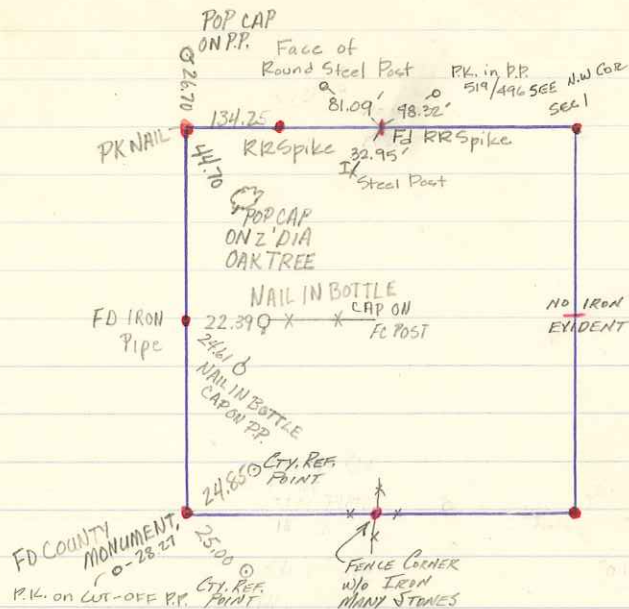 POP CAP
ON P.P.
26.70
Face of
Round Steel Post
81.09'
48.32'
P.K. in P.P.
519/496 SEE N.W COR
SEC 1
PK NAIL
134.25
RR Spike
Fd RR Spike
32.95'
Steel Post
44.70
POP CAP
ON 2' DIA
OAK TREE
NAIL IN BOTTLE
CAP ON
FC POST
FD IRON
Pipe
22.39
24.61
NAIL IN BOTTLE
CAP ON P.P.
NO IRON
EVIDENT
24.85
CTY. REF.
POINT
FD COUNTY
MONUMENT,
28.27
P.K. on CUT-OFF P.P.
25.00
CTY. REF.
POINT
FENCE CORNER
W/O IRON
MANY STONES